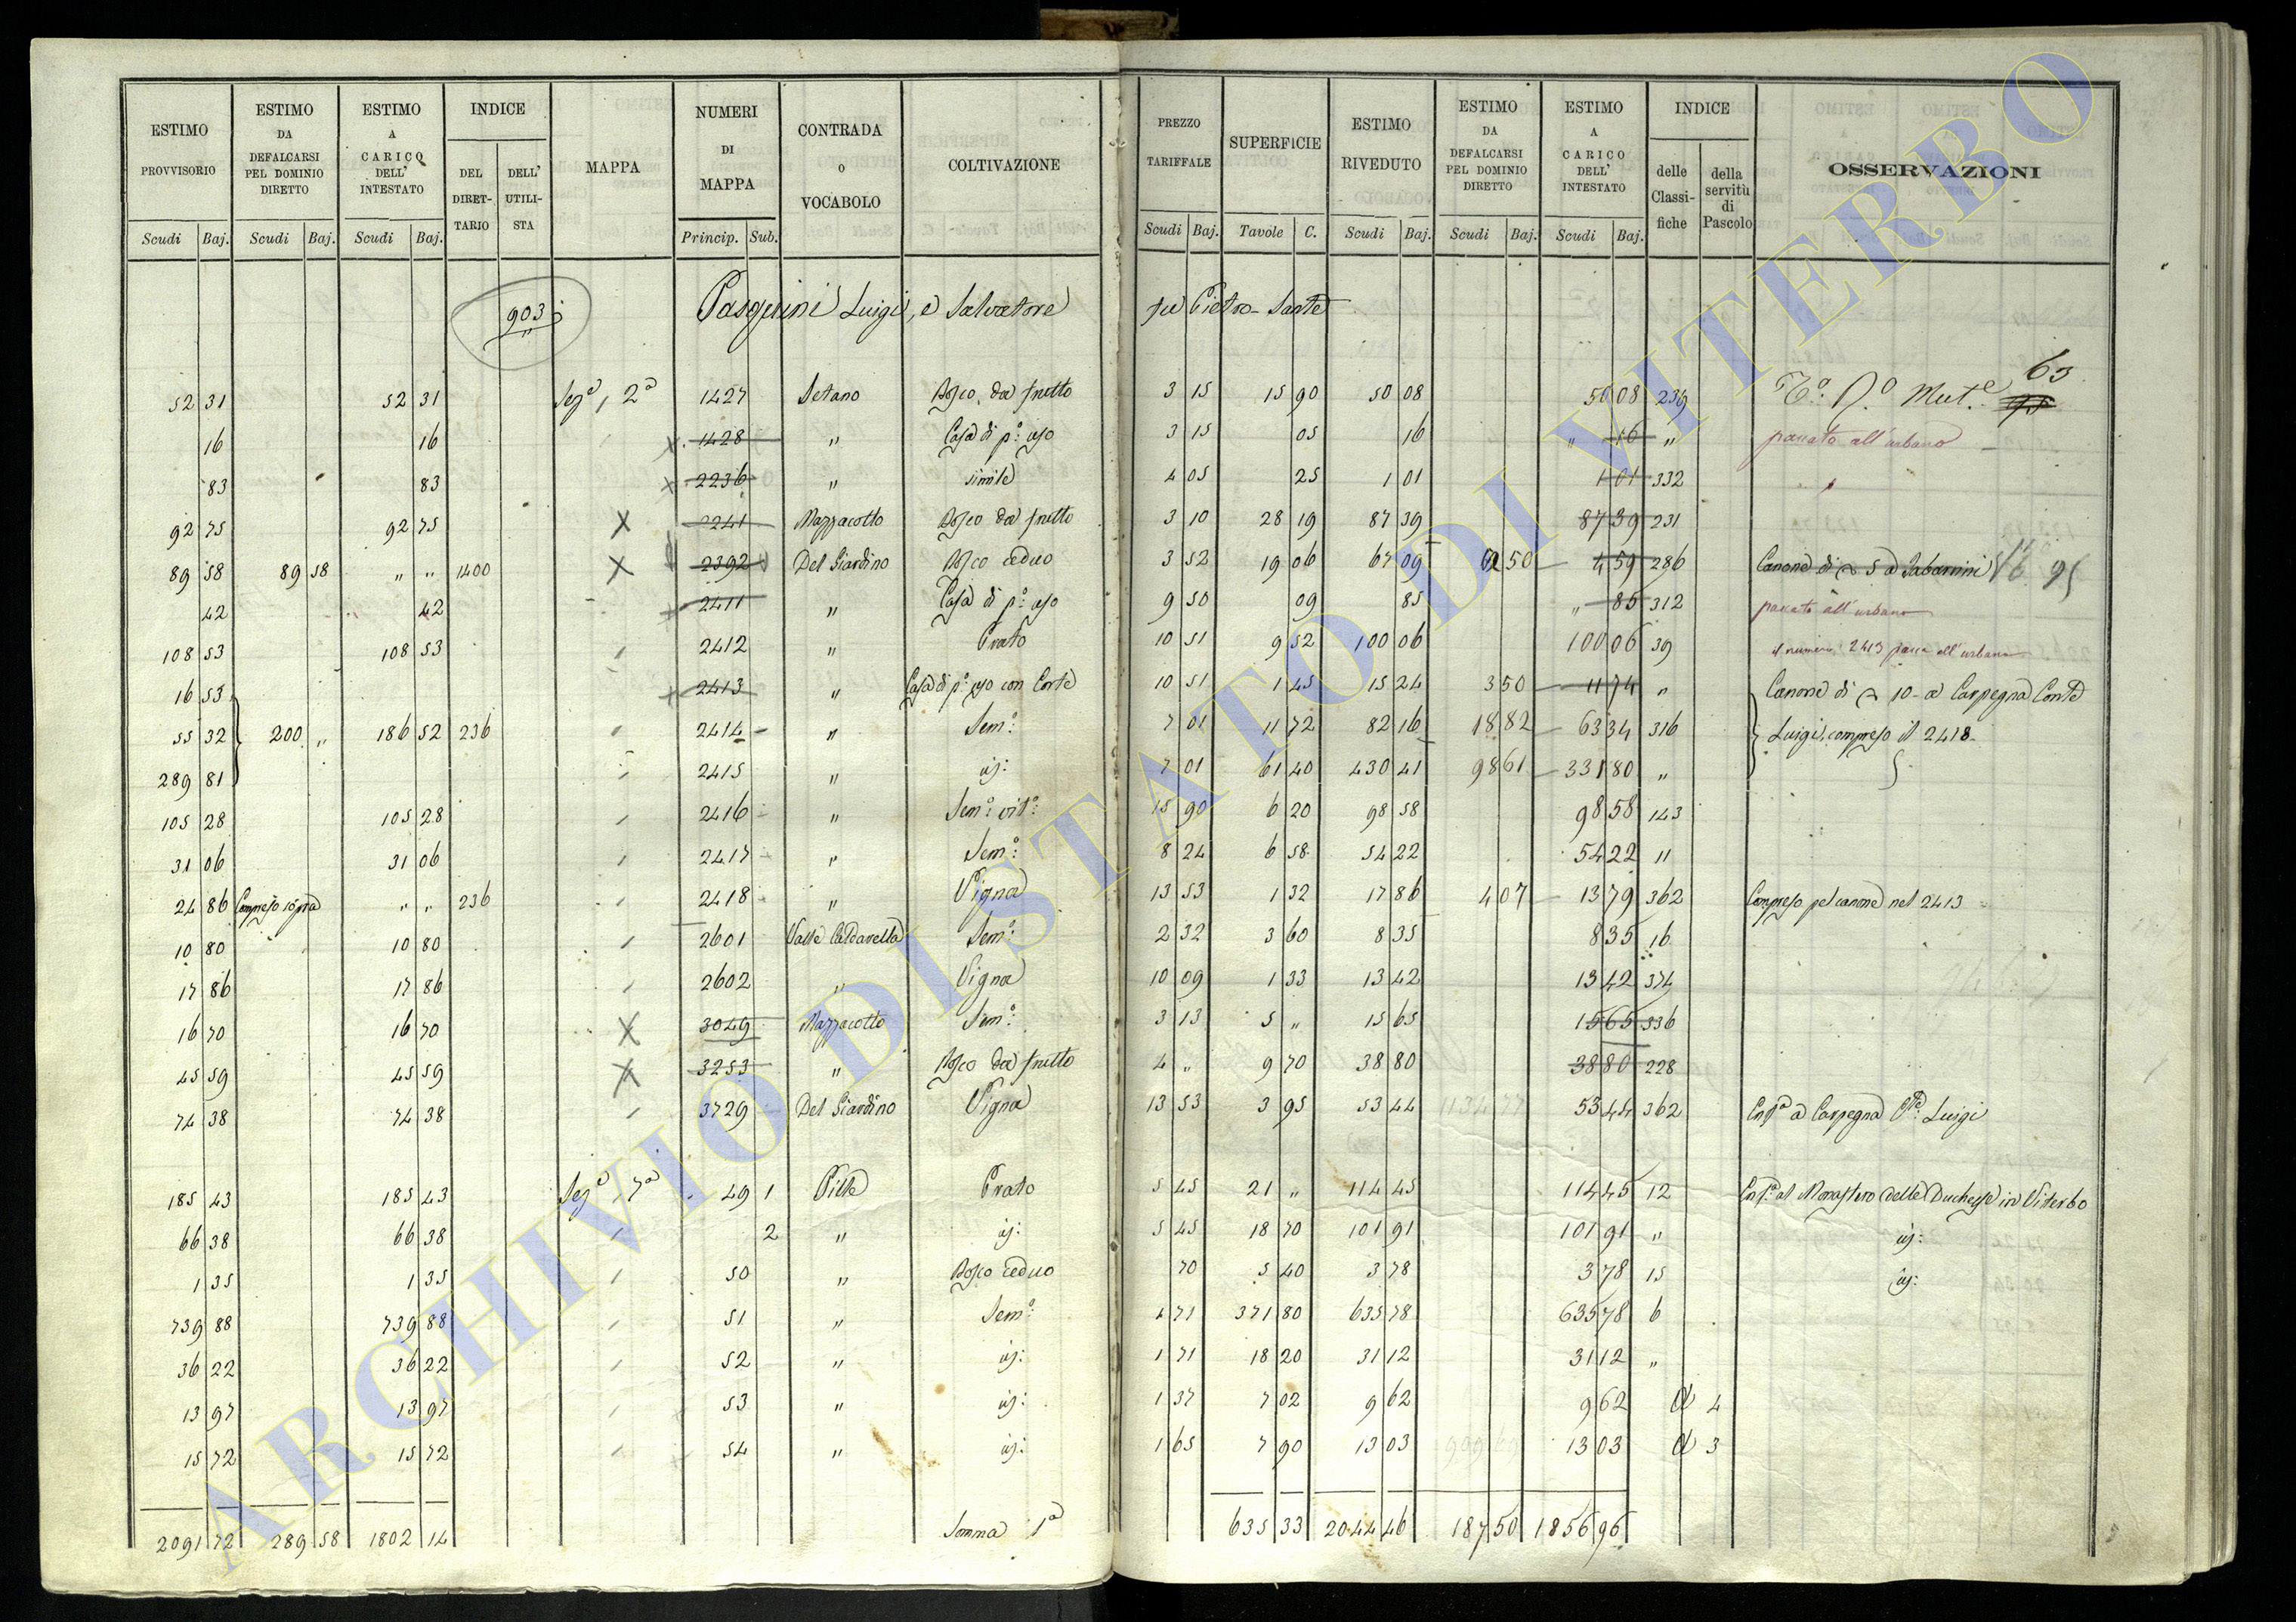 ESTIMO PROVVISORIO | ESTIMO DA DEFALCARSI PEL DOMINIO DIRETTO | ESTIMO A CARICO DELL' INTESTATO | INDICE | MAPPA | NUMERI DI MAPPA | CONTRADA O VOCABOLO | COLTIVAZIONE | PREZZO TARIFFALE | SUPERFICIE | ESTIMO RIVEDUTO | ESTIMO DA DEFALCARSI PEL DOMINIO DIRETTO | ESTIMO A CARICO DELL' INTESTATO | INDICE | OSSERVAZIONI
DEL DIRETTARIO | DELL' UTILISTA | delle Classifiche | della servitù di Pascolo
Scudi | Baj. | Scudi | Baj. | Scudi | Baj. | Princip. | Sub. | Scudi | Baj. | Tavole | C. | Scudi | Baj. | Scudi | Baj. | Scudi | Baj.
903 Pasquini Luigi, e Salvatore fu Pietro-Sante
63
52 31 | 52 31 | Sez.e 2a | 1427 | Setano | Bosco da frutto | 3 15 | 15 90 | 50 08 | 50 08 | 239 | Mut.e
16 | 16 | 1428 | " | Casa di p.o uso | 3 15 | 05 | 16 | " 16 | " | passato all'urbano
83 | 83 | 2236 | " | simile | 4 05 | 25 | 1 01 | 1 01 | 332 | "
92 75 | 92 75 | X | 2241 | Mazzacotto | Bosco da frutto | 3 10 | 28 19 | 87 39 | 87 39 | 231
89 58 | 89 58 | " " | 1400 | X | 2392 | Del Giardino | Bosco ceduo | 3 52 | 19 06 | 67 09 | 62 50 | 4 59 | 286 | Canone di 5 a
42 | 42 | 2411 | " | Casa di p.o uso | 9 50 | 09 | 85 | " 85 | 312 | passato all'urbano
108 53 | 108 53 | 2412 | " | Prato | 10 51 | 9 52 | 100 06 | 100 06 | 39 | il numero 2413 passa all'urbano
16 53 | 2413 | " | Casa di p.o uso con Corte | 10 51 | 1 45 | 15 24 | 3 50 | 11 74 | " | Canone di 10 a Carpegna Conte
55 32 | 200 " | 186 52 | 236 | 2414 | " | Sem.o | 7 01 | 11 72 | 82 16 | 18 82 | 63 34 | 316 | Luigi, compreso il 2418
289 81 | 2415 | " | id: | 7 01 | 61 40 | 430 41 | 98 61 | 331 80 | "
105 28 | 105 28 | 2416 | " | Sem.o vit.o | 15 90 | 6 20 | 98 58 | 98 58 | 143
31 06 | 31 06 | 2417 | " | Sem.o | 8 24 | 6 58 | 54 22 | 54 22 | 11
24 86 | Compreso sopra | " " | 236 | 2418 | " | Vigna | 13 53 | 1 32 | 17 86 | 4 07 | 13 79 | 362 | Compreso pel canone nel 2413
10 80 | 10 80 | 2601 | Valle Caldarella | Sem.o | 2 32 | 3 60 | 8 35 | 8 35 | 16
17 86 | 17 86 | 2602 | " | Vigna | 10 09 | 1 33 | 13 42 | 13 42 | 374
16 70 | 16 70 | X | 3049 | Mazzacotto | Sem.o | 3 13 | 5 " | 15 65 | 15 65 | 336
45 59 | 45 59 | X | 3253 | " | Bosco da frutto | 4 " | 9 70 | 38 80 | 38 80 | 228
74 38 | 74 38 | 3729 | Del Giardino | Vigna | 13 53 | 3 95 | 53 44 | 53 44 | 362 | a Carpegna C.te Luigi
185 43 | 185 43 | Sez.e 7a | 49 | 1 | Pille | Prato | 5 45 | 21 " | 114 45 | 114 45 | 12 | al Monastero delle Duchesse in Viterbo
66 38 | 66 38 | 2 | " | id: | 5 45 | 18 70 | 101 91 | 101 91 | " | id:
1 35 | 1 35 | 50 | " | Bosco ceduo | 70 | 5 40 | 3 78 | 3 78 | 15 | id:
739 88 | 739 88 | 51 | " | Sem.o | 1 71 | 371 80 | 635 78 | 635 78 | 6
36 22 | 36 22 | 52 | " | id: | 1 71 | 18 20 | 31 12 | 31 12 | "
13 97 | 13 97 | 53 | " | id: | 1 37 | 7 02 | 9 62 | 9 62 | a 4
15 72 | 15 72 | 54 | " | id: | 1 65 | 7 90 | 13 03 | 13 03 | a 3
2091 72 | 289 58 | 1802 14 | Somma 1a | 635 33 | 2044 46 | 187 50 | 1856 96
ARCHIVIO DI STATO DI VITERBO